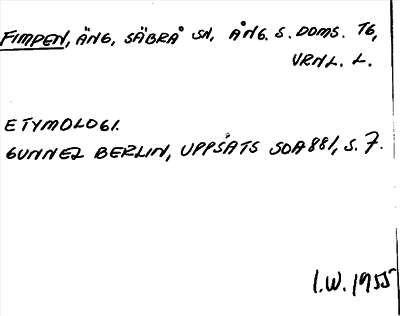 FIMPEN, ÄNG, SÄBRÅ SN, ÅNG. S. DOMS. TG,
VRNL. L.
ETYMOLOGI.
GUNNEL BERLIN, UPPSATS SOA881, S. 7.
I.W. 1955